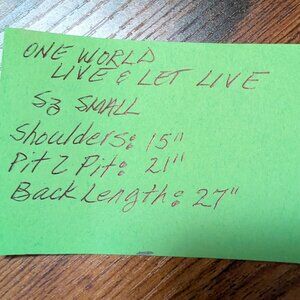 ONE WORLD
LIVE & LET LIVE
Sz SMALL
Shoulders: 15"
Pit 2 Pit: 21"
Back Length: 27"